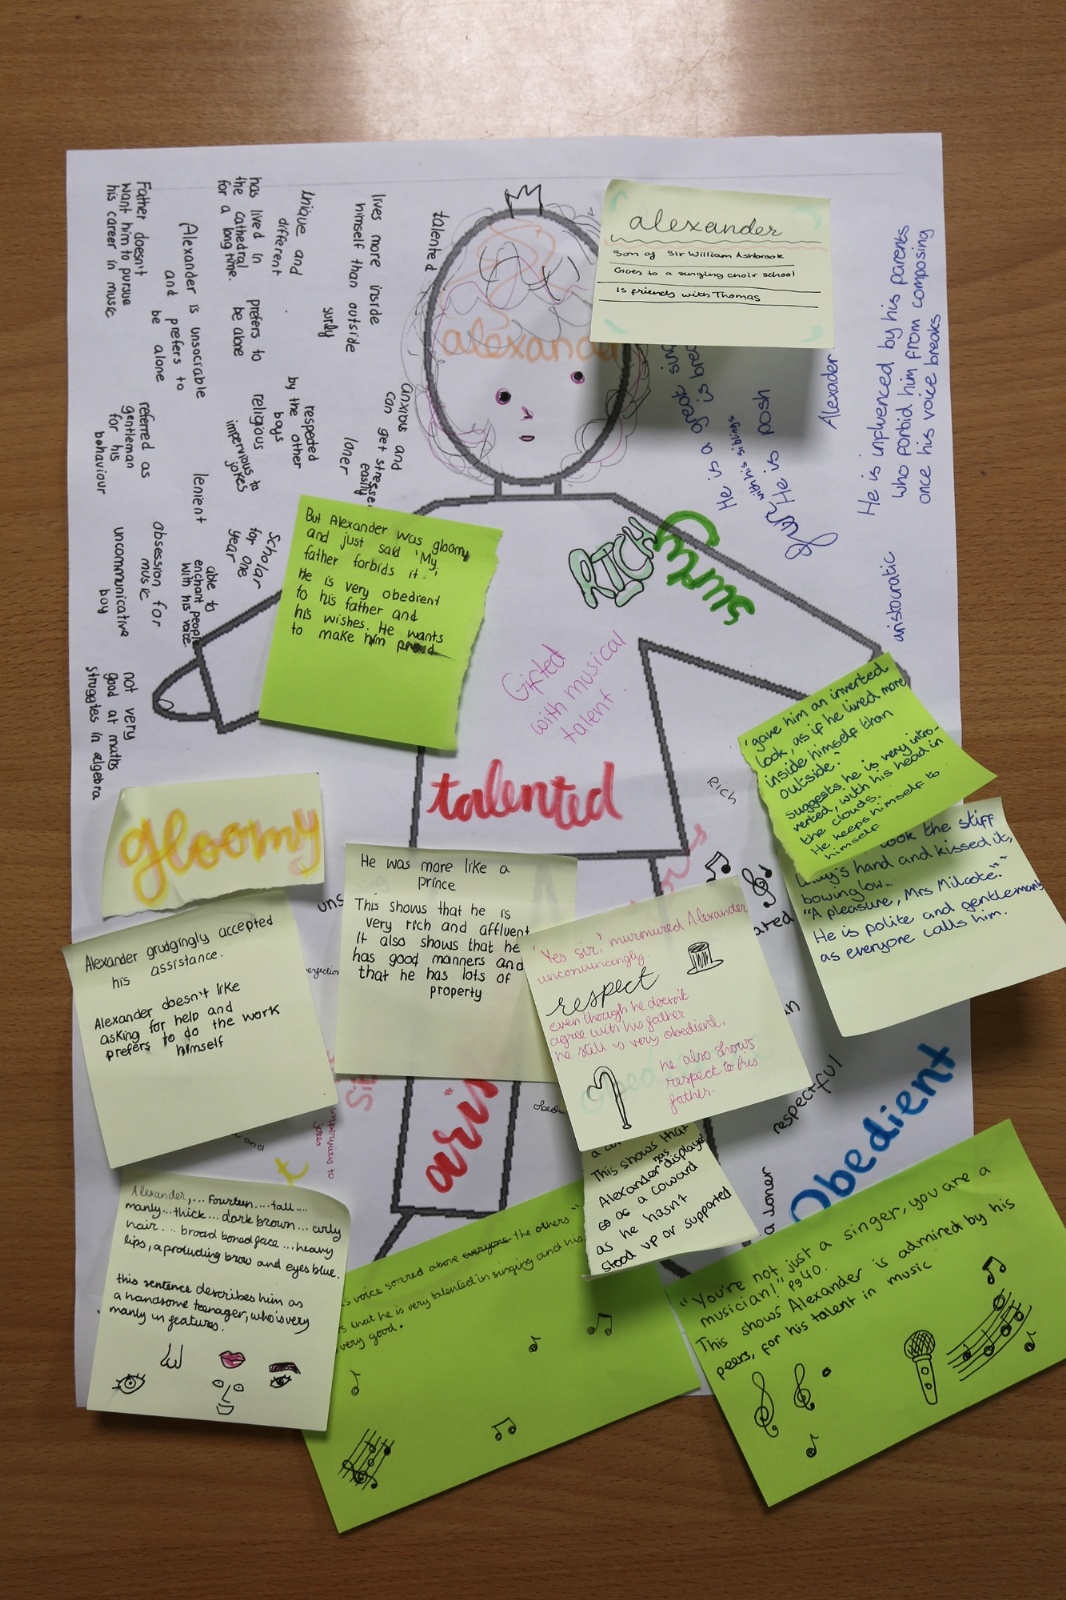 alexander
Son of Sir William Ashbrook
Goes to a singing choir school
Is friends with Thomas
talented
lives more inside
himself than outside
surly
unique and
different
has lived in
the cathedral
for a long time.
prefers to
be alone
Alexander is unsociable
and prefers to
be alone
Father doesn't
want him to pursue
his career in music
anxious and
can get stressed
easily
loner
respected
by the other
boys
religious
impervious to
jokes
referred as
gentleman
for his
behaviour
lenient
Scholar
for one
year
able to
enchant people
with his voice
obsession for
music
uncommunicative
boy
not very
good at maths
struggles in algebra
alexander
He is a great
is
with his siblings
He is posh
Alexader
He is influenced by his parents
who forbid him from composing
once his voice breaks
aristocratic
RICH
surly
But Alexander was gloomy
and just said 'My
father forbids it.'
He is very obedient
to his father and
his wishes. He wants
to make him proud
Gifted
with musical
talent.
talented
Rich
'gave him an inverted
look, as if he lived more
inside himself than
outside.'
suggests he is very intro-
verted, with his head in
the clouds.
He keeps himself to
himself
took the stiff
lady's hand and kissed it,
bowing low...
"A pleasure, Mrs Milcote."
He is polite and gentlemanly
as everyone calls him.
gloomy
Alexander grudgingly accepted
his assistance.
Alexander doesn't like
asking for help and
prefers to do the work
himself
He was more like a
prince
This shows that he is
very rich and affluent
It also shows that he
has good manners and
that he has lots of
property
'Yes sir,' murmured Alexander
unconvincingly.
respect
even though he doesn't
agree with his father
he still is very obedient.
he also shows
respect to his
father.
respectful
Obedient
a loner
This shows that
Alexander has displayed
as a coward
as he hasn't
stood up or supported
Alexander,... Fourteen.... tall....
manly...thick... dark brown... curly
hair... broad boned face...heavy
lips, a protruding brow and eyes blue.
this sentence describes him as
a handsome teenager, who is very
manly in features.
voice soared above everyone the others"
that he is very talented in singing and his
very good.
"You're not just a singer, you are a
musician!" pg40.
This shows Alexander is admired by his
peers, for his talent in music